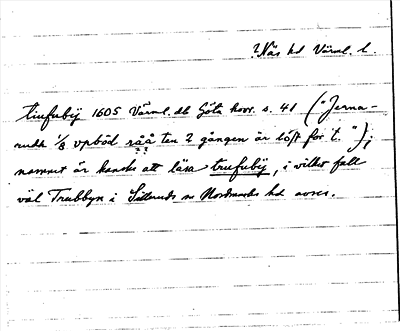 ? Näs hd Värml. l.
tiufubÿ 1605 Värml. db Göta hovr. s. 41 ("Jerna-
rudh 1/8 vpböd råå ten 2 gången är 16/1 för t.");
namnet är kanske att läsa trufubÿ, i vilket fall
väl Trubbyn i Silleruds sn Nordmarks hd avses.